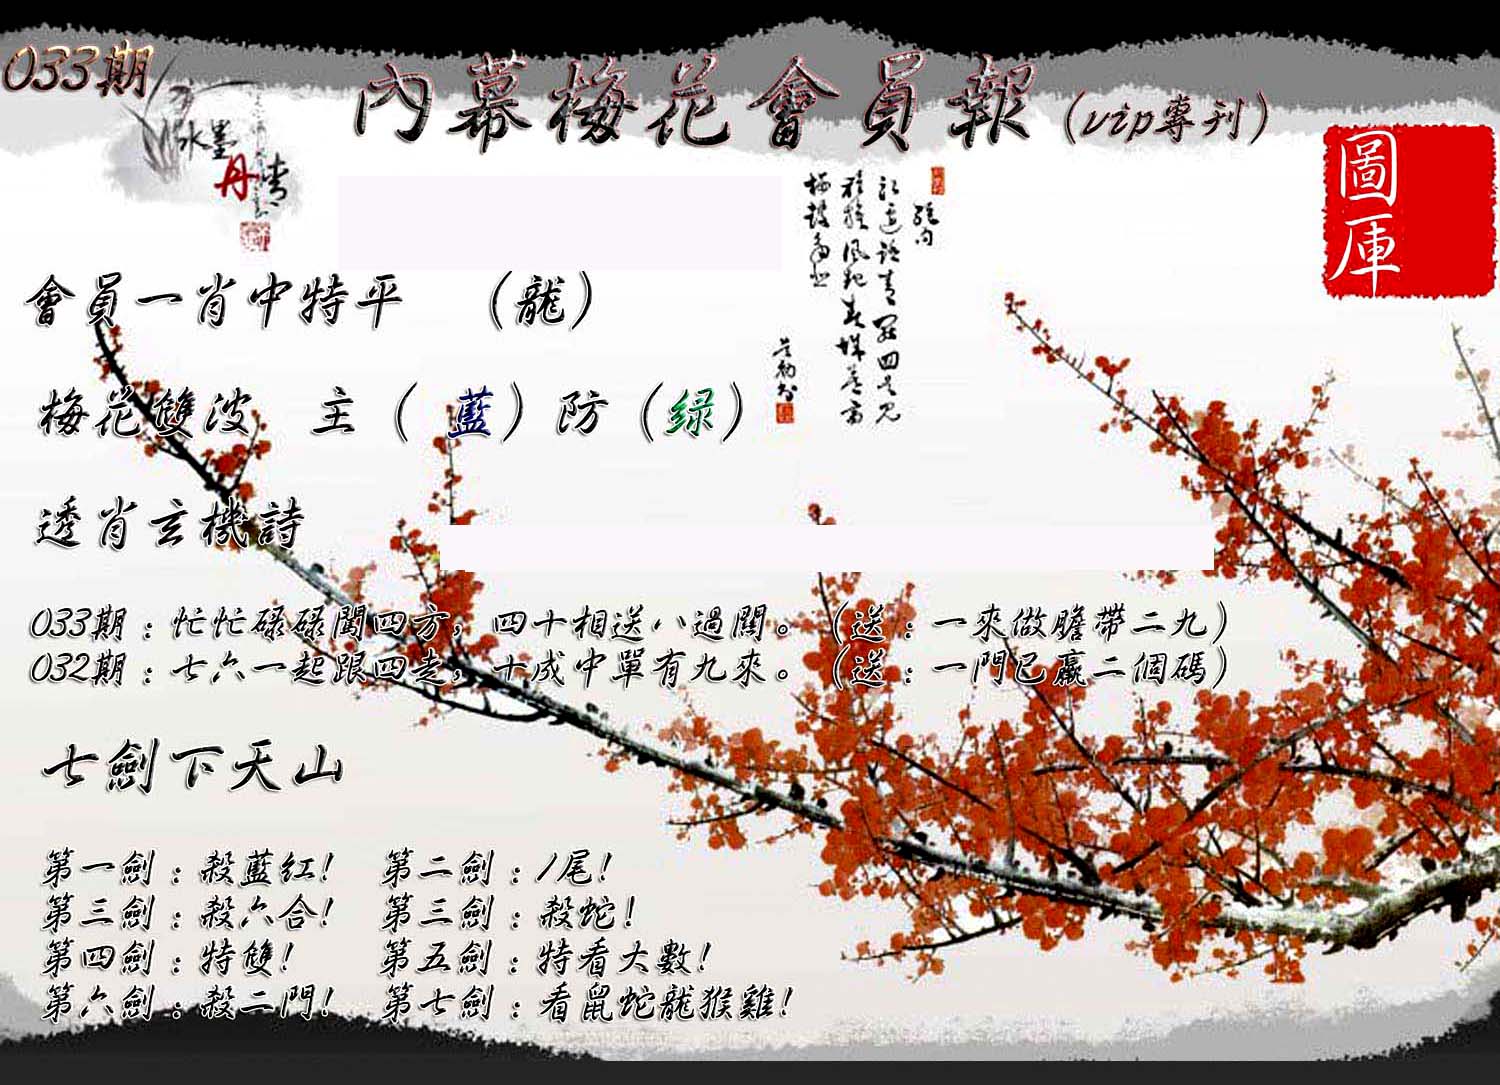 033期
內幕梅花會員報(vip專刊)
水墨
丹青
圖庫
會員一肖中特平 (龍)
梅花雙波 主(藍)防(绿)
透肖玄機詩
033期:忙忙碌碌闖四方,四十相送八過關。(送:一來做膽帶二九)
032期:七六一起跟四走,十成中單有九來。(送:一門已贏二個碼)
七劍下天山
第一劍:殺藍紅! 第二劍:1尾!
第三劍:殺六合! 第三劍:殺蛇!
第四劍:特雙! 第五劍:特看大數!
第六劍:殺二門! 第七劍:看鼠蛇龍猴雞!